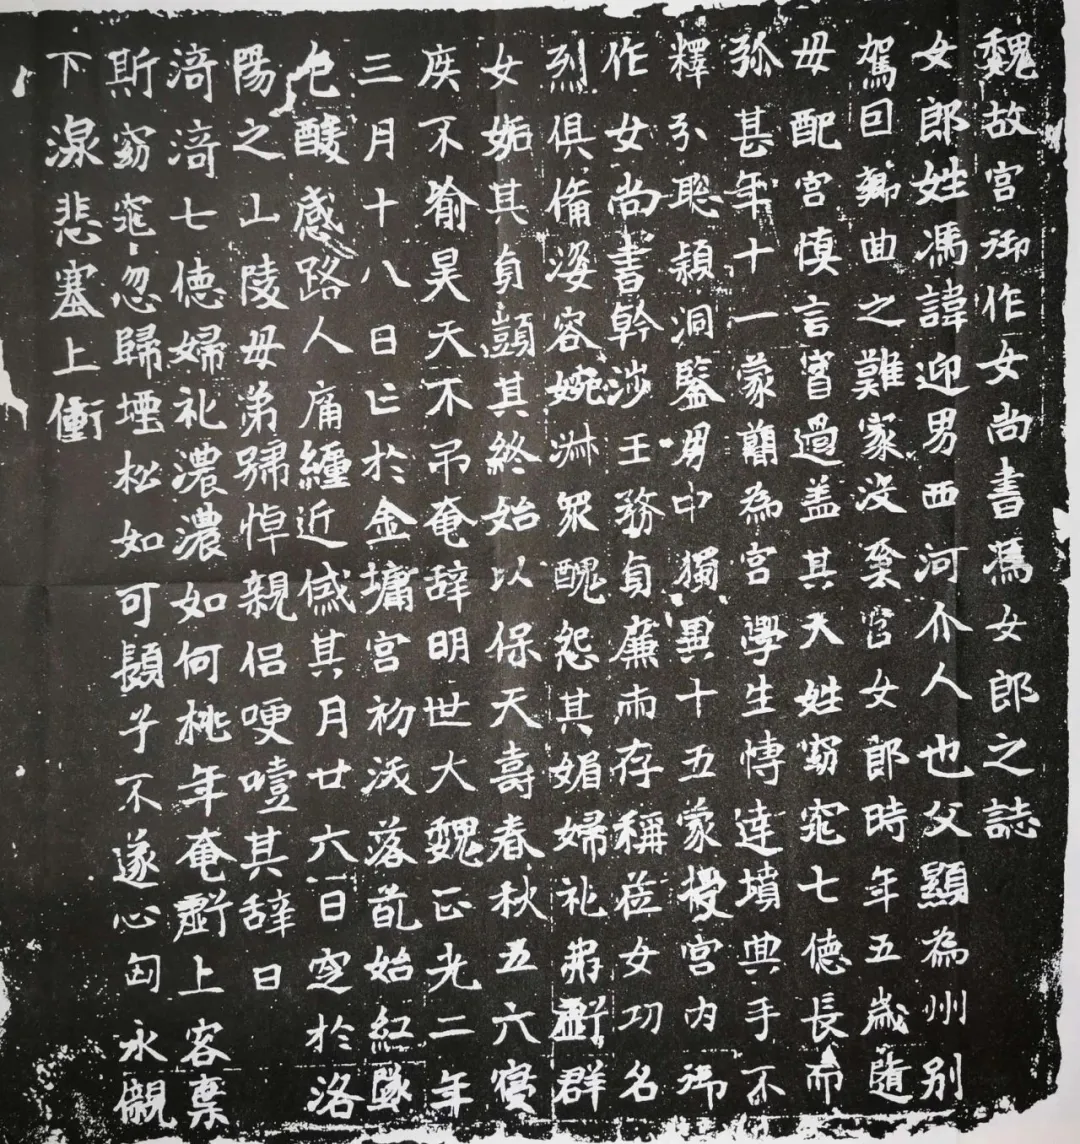 魏故宮御作女尚書馮女郎之誌
女郎姓馮諱迎男西河介人也父顯為州別
駕因鄉曲之難家沒奚官女郎時年五歲隨
母配宮慎言寡過盖其天姓窈窕七德長而
弥甚年十一蒙蕳為宮學生慱達墳典手不
釋卷聡穎洞鑒朋中獨異十五蒙授宮內御
作女尚書幹涉王務貞廉兩存稱莅女功名
烈俱備姿容婉淋眾醜怨其媚婦礼弗虧群
女妬其貞顗其終始以保天壽春秋五六寢
疾不喻昊天不吊奄辞明世大魏正光二年
三月十八日亡於金墉宮初茂落茝始紅墜
色酸感路人痛纏近慼其月廿六日窆於洛
陽之山陵母弟歸悼親侶哽噎其辞曰
渏渏七德婦礼濃濃如何桃年奄虧上容棄
斯窈窕忽歸堙松如可顗子不遂心匈永儭
下湶悲塞上衝